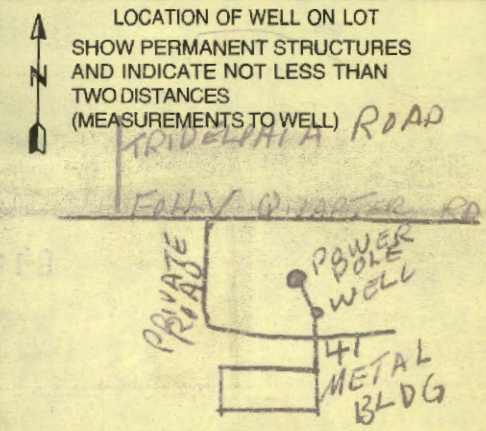 LOCATION OF WELL ON LOT
SHOW PERMANENT STRUCTURES
N AND INDICATE NOT LESS THAN
TWO DISTANCES
(MEASUREMENTS TO WELL)
TRIDELPHIA ROAD
FOLLY QUARTER RD
PRIVATE
ROAD
POWER
POLE
WELL
41
METAL
BLDG